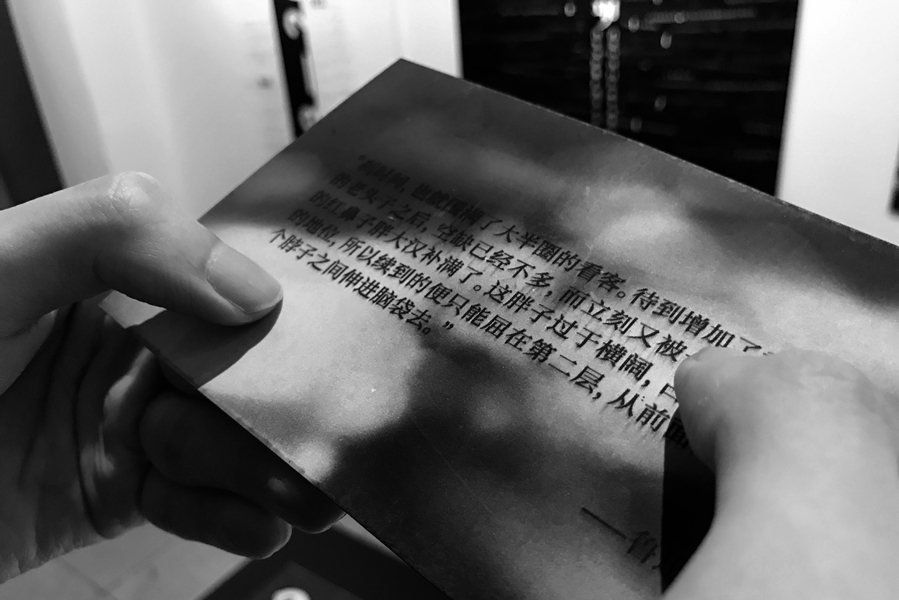 “刹时间，也就围满了大半圈的看客。待到增加了
的老头子之后，空缺已经不多，而立刻又被
的红鼻子胖大汉补满了。这胖子过于横阔，占
的地位，所以续到的便只能屈在第二层，从前面
个脖子之间伸进脑袋去。”
——鲁